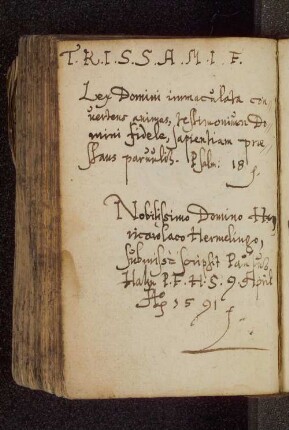 T. R. I. S. S. A. N. I. F.
Lex Domini immaculata con
uertens animas, testimonium Do
mini fidele, sapientiam prae
stans paruulis. Psalm: 18
Nobilissimo Domino
Hermelingo,
submisse scripsit
P. F. H. S. 9 April
1591